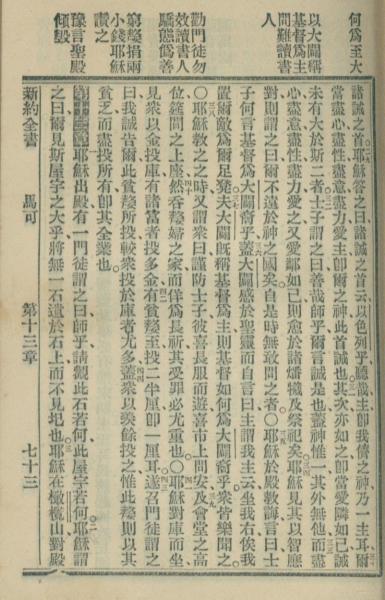 何爲至大
以大闢稱
基督爲主
問難讀書
人
勸門徒勿
效讀書人
驕態爲善
窮嫠捐兩
小錢耶穌
讚之
豫言聖殿
傾毀
誡之首耶穌答之曰諸誡之首云以色列乎聽哉主卽我儕之神乃一主耳爾
當盡心盡性盡意盡力愛主卽爾之神此首誡也其次亦如之卽當愛隣如己誡
未有大於斯二者士子謂之曰善哉師乎爾言誠是也蓋神惟一其外無他而盡
心盡意盡性盡力愛之又愛鄰如己則愈於諸燔犧及祭祀矣耶穌見其以智應
對則謂之曰爾不遠於神之國矣自是時無敢問之者〇耶穌於殿敎誨言曰士
子何言基督爲大闢裔乎蓋大闢感於聖靈而自言曰主謂我主云坐我右俟我
置爾敵爲爾足凳夫大闢旣稱基督爲主則基督如何爲大闢裔乎衆皆樂聞之
〇耶穌敎之之時又謂衆曰謹防士子彼喜長服而遊喜市上問安及會堂之高
位筵間之上座然吞嫠婦之家而佯爲長祈其受罪必尤重也〇耶穌對庫而坐
見衆以金投庫有諸富者投多金有貧嫠至投二半厘卽一厘耳遂召門徒謂之
曰我誠告爾此貧嫠所投較衆投於庫者尤多蓋衆以羨餘投之惟此嫠則以其
貧乏而盡投所有卽其全業也
第十三章 耶穌出殿有一門徒謂之曰師乎請觀此石者何此屋宇若何耶穌謂
之曰爾見斯屋宇之大乎將無一石遺於石上而不見圮也耶穌在橄欖山對殿
新約全書 馬可 第十三章 七十三